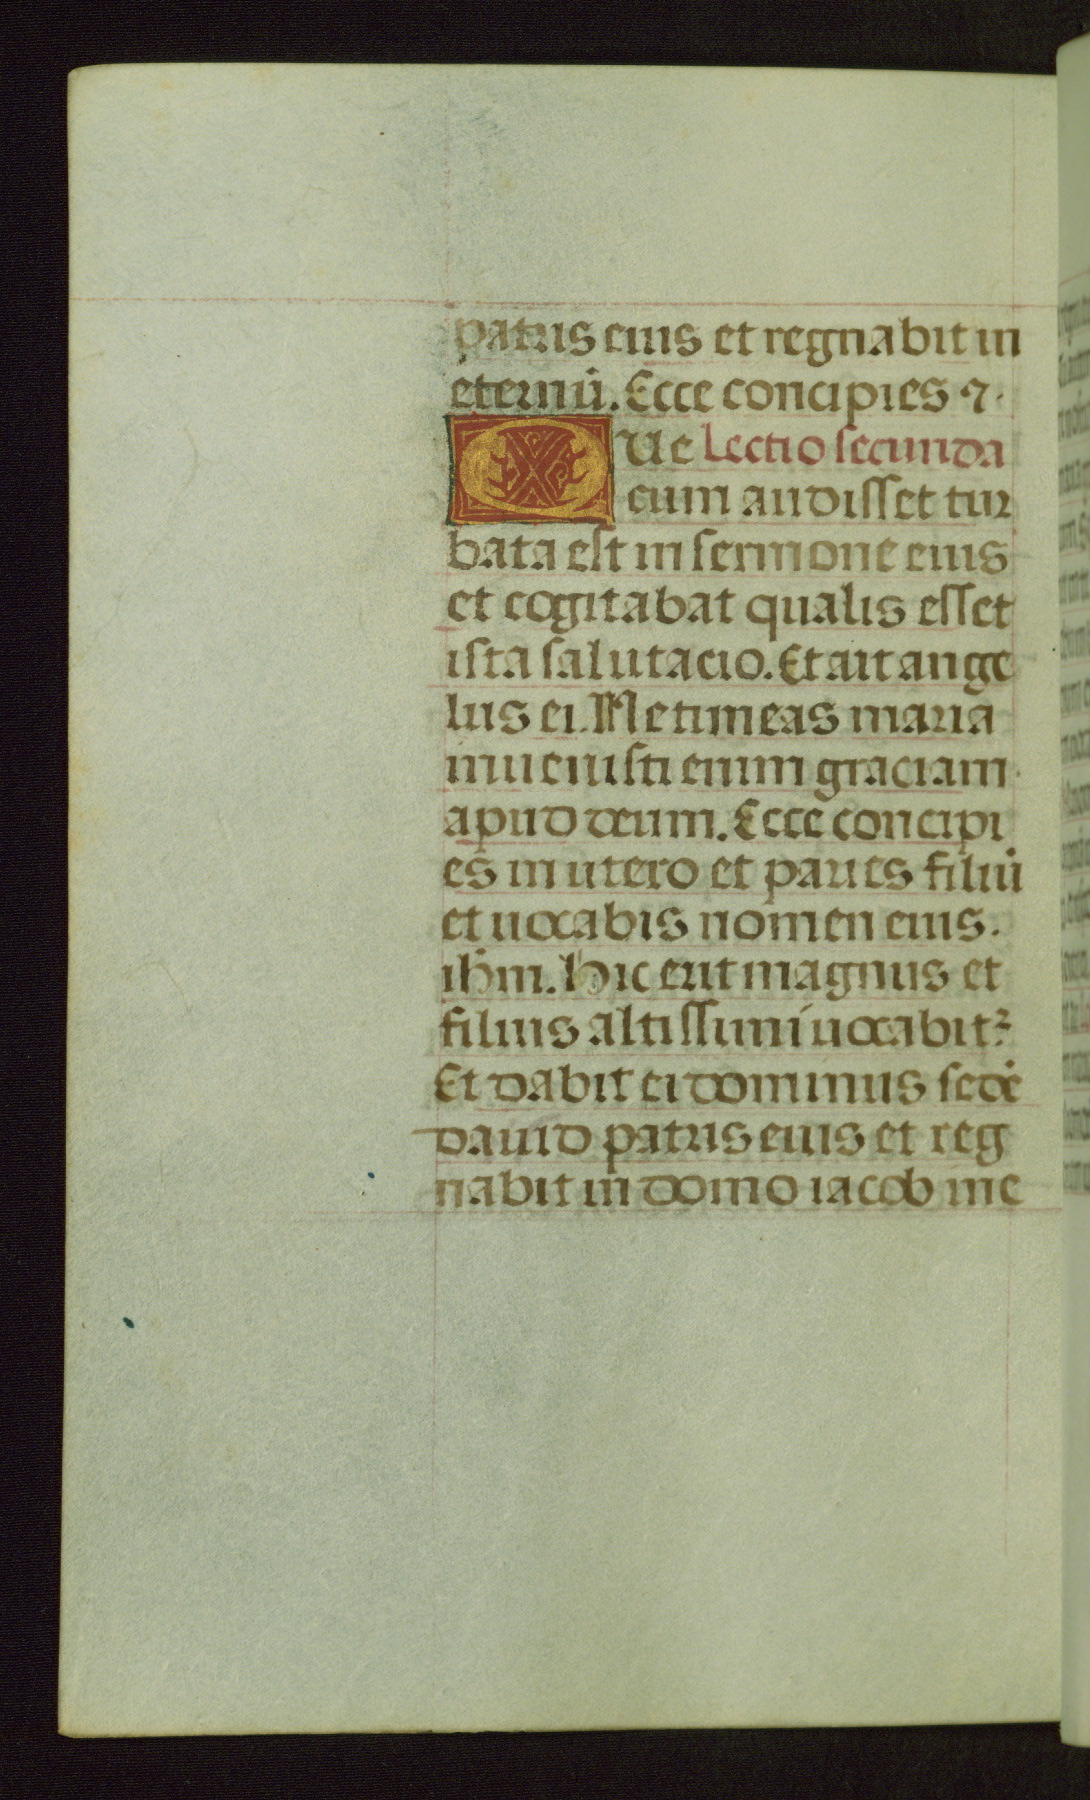 patris eius et regnabit in
eternū. Ecce concipies ⁊.
Que Lectio secunda
cum audisset tur
bata est in sermone eius
et cogitabat qualis esset
ista salutacio. Et ait ange
lus ei. Ne timeas maria
inuenisti enim graciam
apud deum. Ecce concipi
es in utero et paries filiū
et uocabis nomen eius.
ihm. Hic erit magnus et
filius altissimi uocabit᷑
Et dabit ei dominus sedē
dauid patris eius et reg
nabit in domo iacob in e